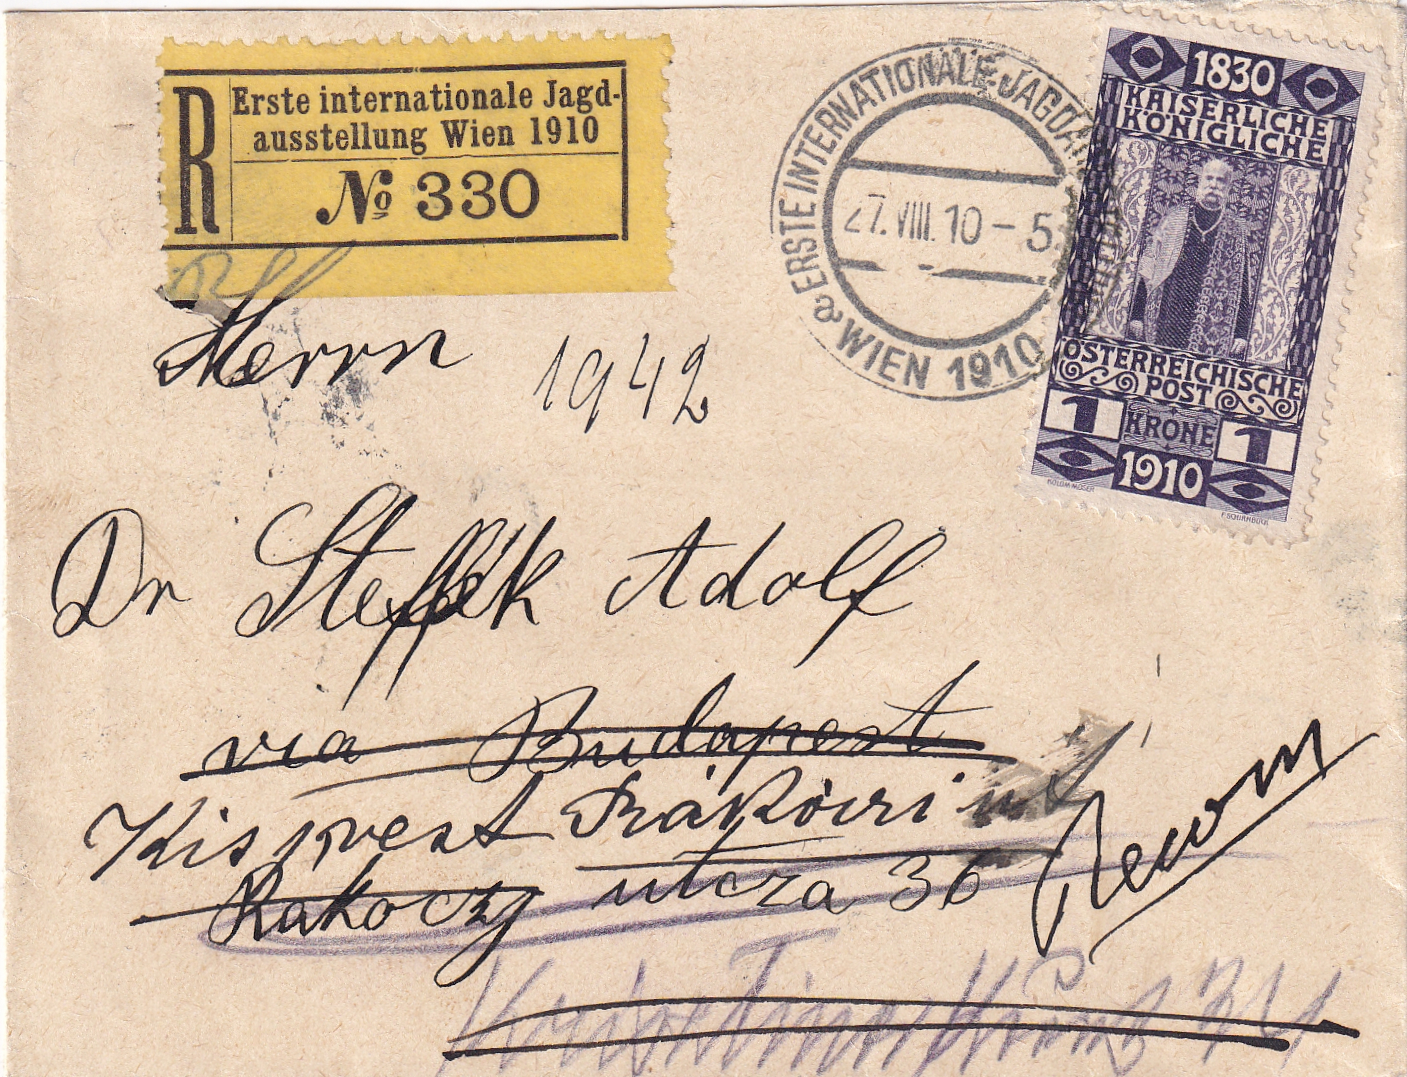 R
Erste internationale Jagd-
ausstellung Wien 1910
№ 330
ERSTE INTERNATIONALE JAGDA
27. VIII. 10 - 5
WIEN 1910
1830
KAISERLICHE
KÖNIGLICHE
ÖSTERREICHISCHE
POST
1 KRONE 1
1910
KOLOM. MOSER
F. SCHIRNBÖCK
Herrn
1942
Dr Steffek Adolf
via Budapest
Kispest Rákóczi út
Rakoczy utcza 36